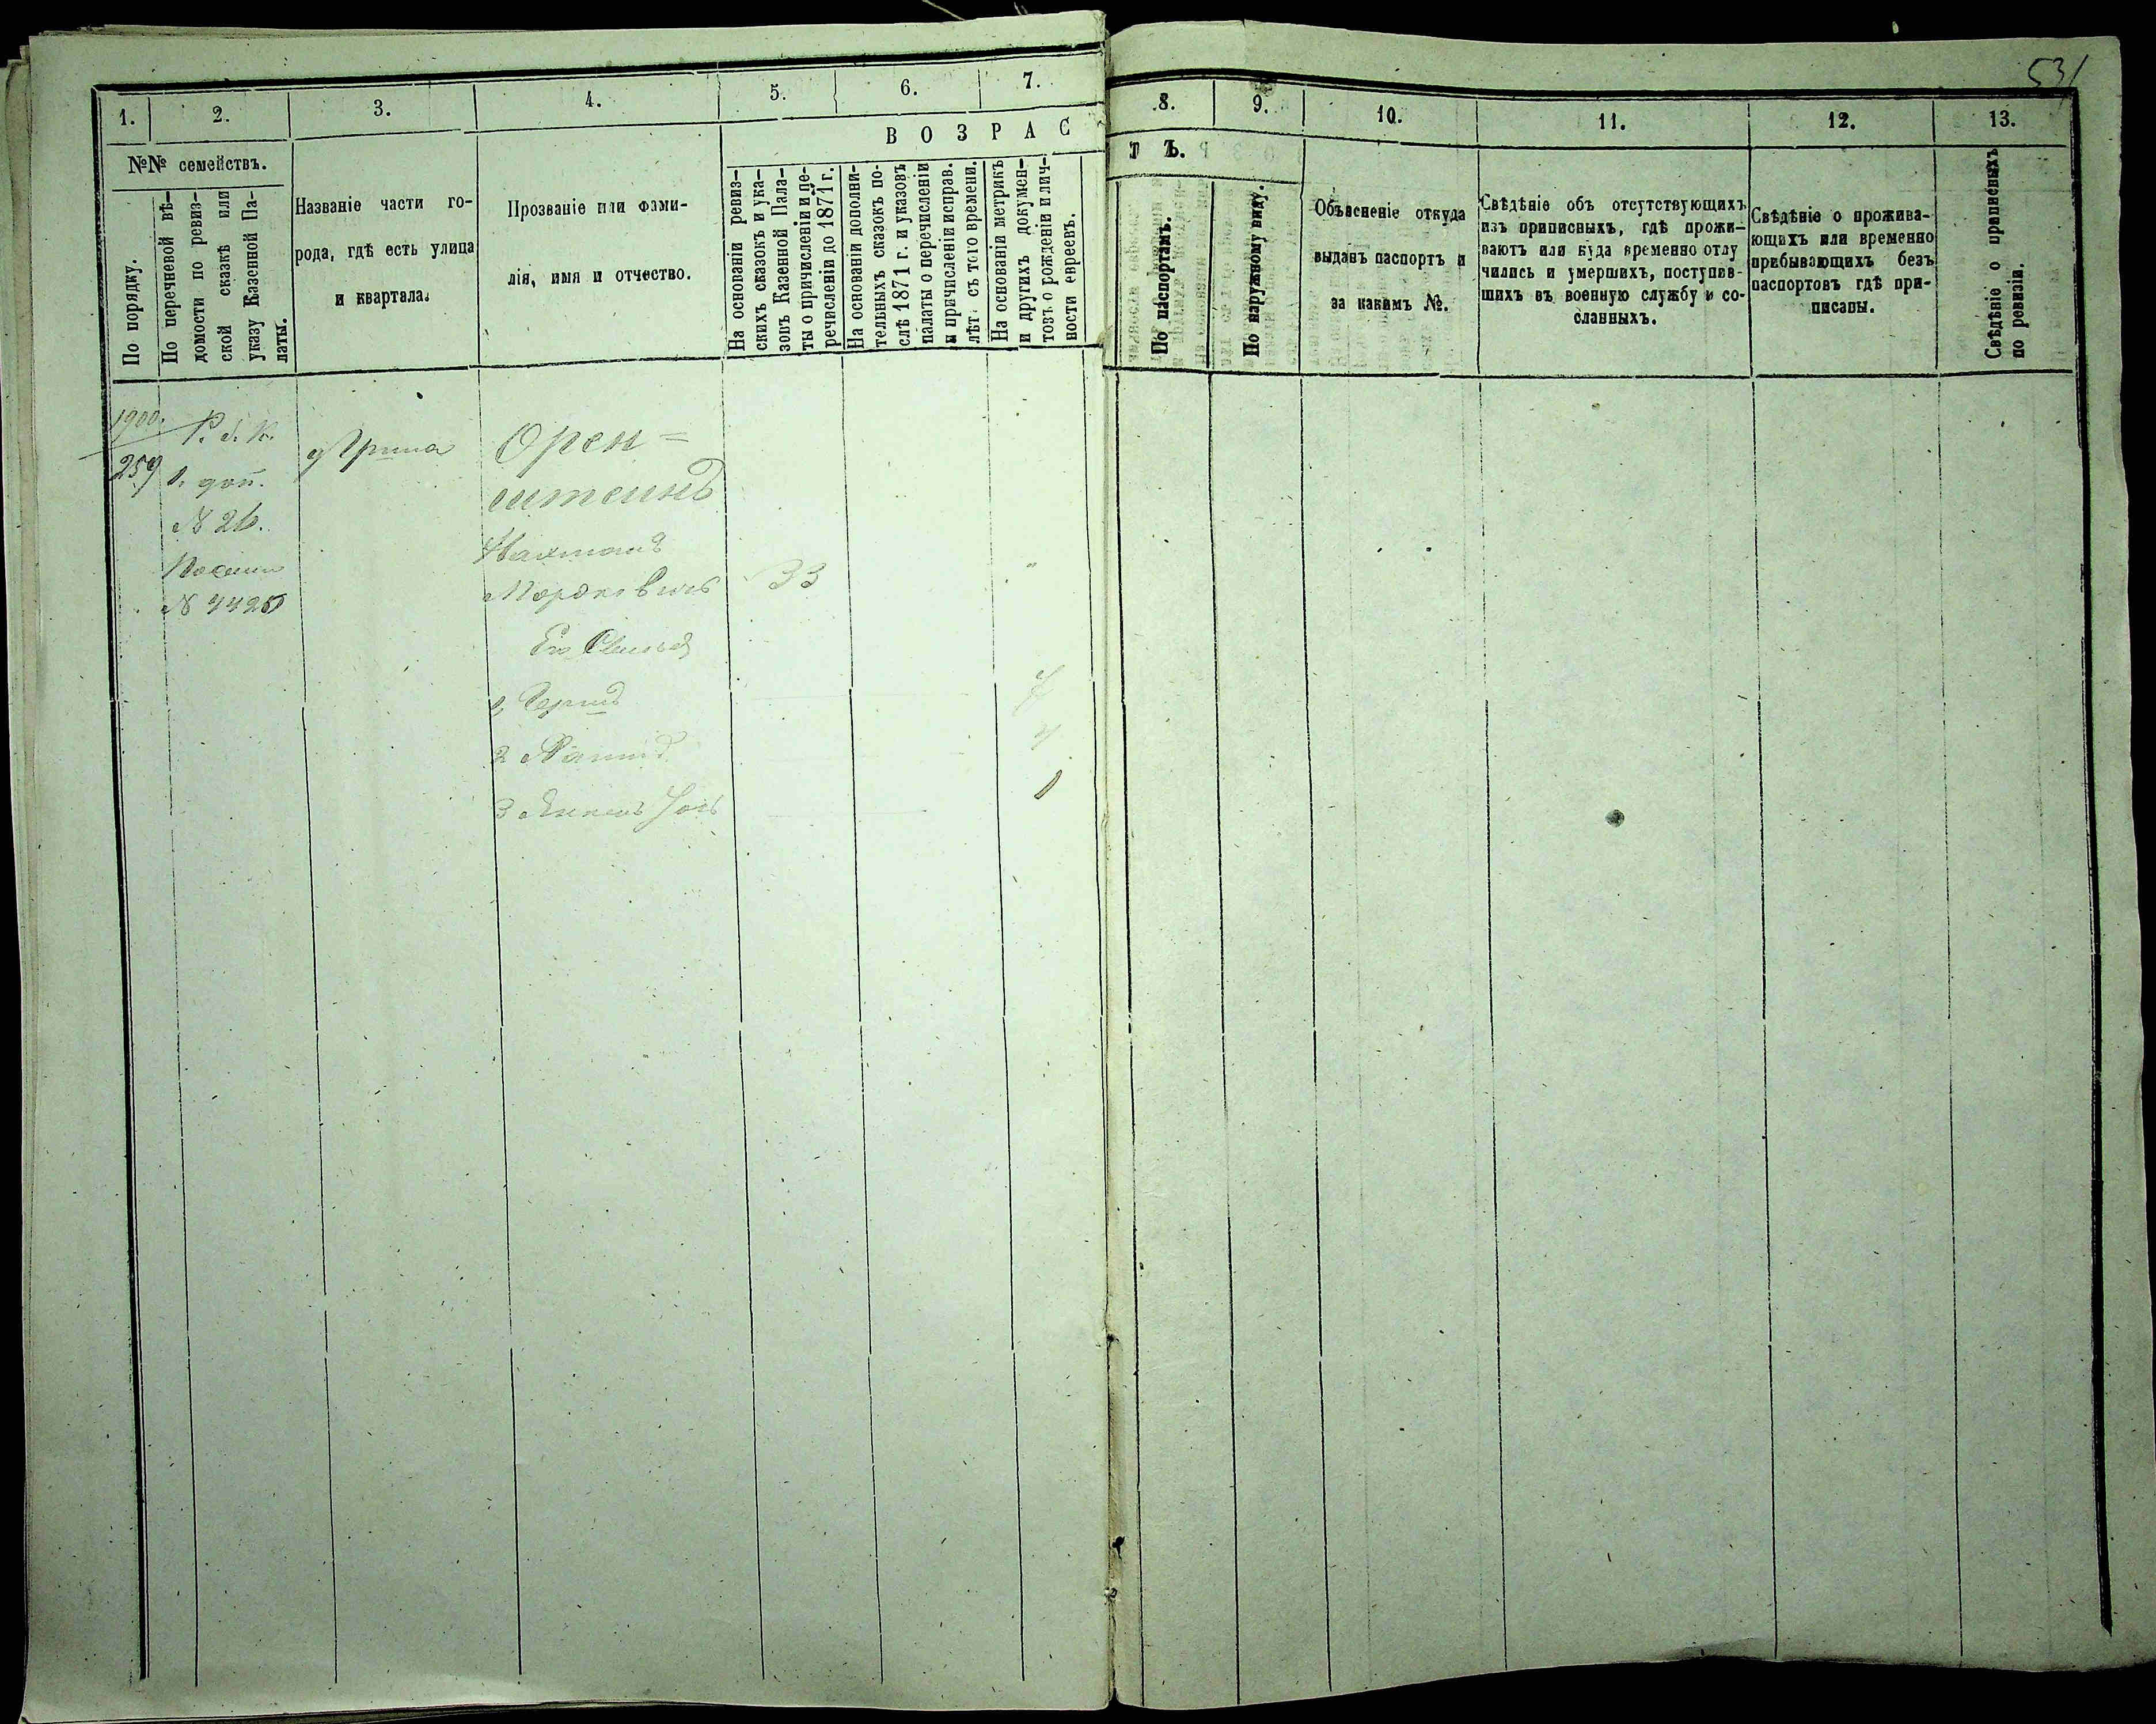 531
1. 2. 3. 4. 5. 6. 7. 8. 9. 10. 11. 12. 13.
№№ семействъ.
По порядку.
По перечневой вѣ-
домости по ревиз-
ской сказкѣ или
указу Казенной Па-
латы.
Названіе части го-
рода, гдѣ есть улица
и квартала.
Прозваніе или фами-
лія, имя и отчество.
ВОЗРАС
ТЪ.
На основаніи ревиз-
скихъ сказокъ и ука-
зовъ Казенной Пала-
ты о причисленіи и пе-
речисленіи до 1871 г.
На основаніи дополни-
тельныхъ сказокъ по-
слѣ 1871 г. и указовъ
палаты о перечисленіи
и причисленіи исправ.
лѣт съ того времени.
На основаніи метрикъ
и другихъ докумен-
товъ о рожденіи и лич-
ности евреевъ.
По паспортамъ.
По наружному виду.
Объясненіе откуда
выданъ паспортъ и
за какимъ №.
Свѣдѣніе объ отсутствующихъ
изъ приписныхъ, гдѣ прожи-
ваютъ или куда временно отлу
чились и умершихъ, поступив-
шихъ въ военную службу и со-
сланныхъ.
Свѣдѣніе о прожива-
ющихъ или временно
прибывающихъ безъ
паспортовъ гдѣ при-
писаны.
Свѣдѣніе о приписныхъ
по ревизіи.
1900.
259
1. доп.
№ 26.
Орен=
штеинъ
Нахманъ
Мордковичъ 33
Его
1 7
2 4
3 1